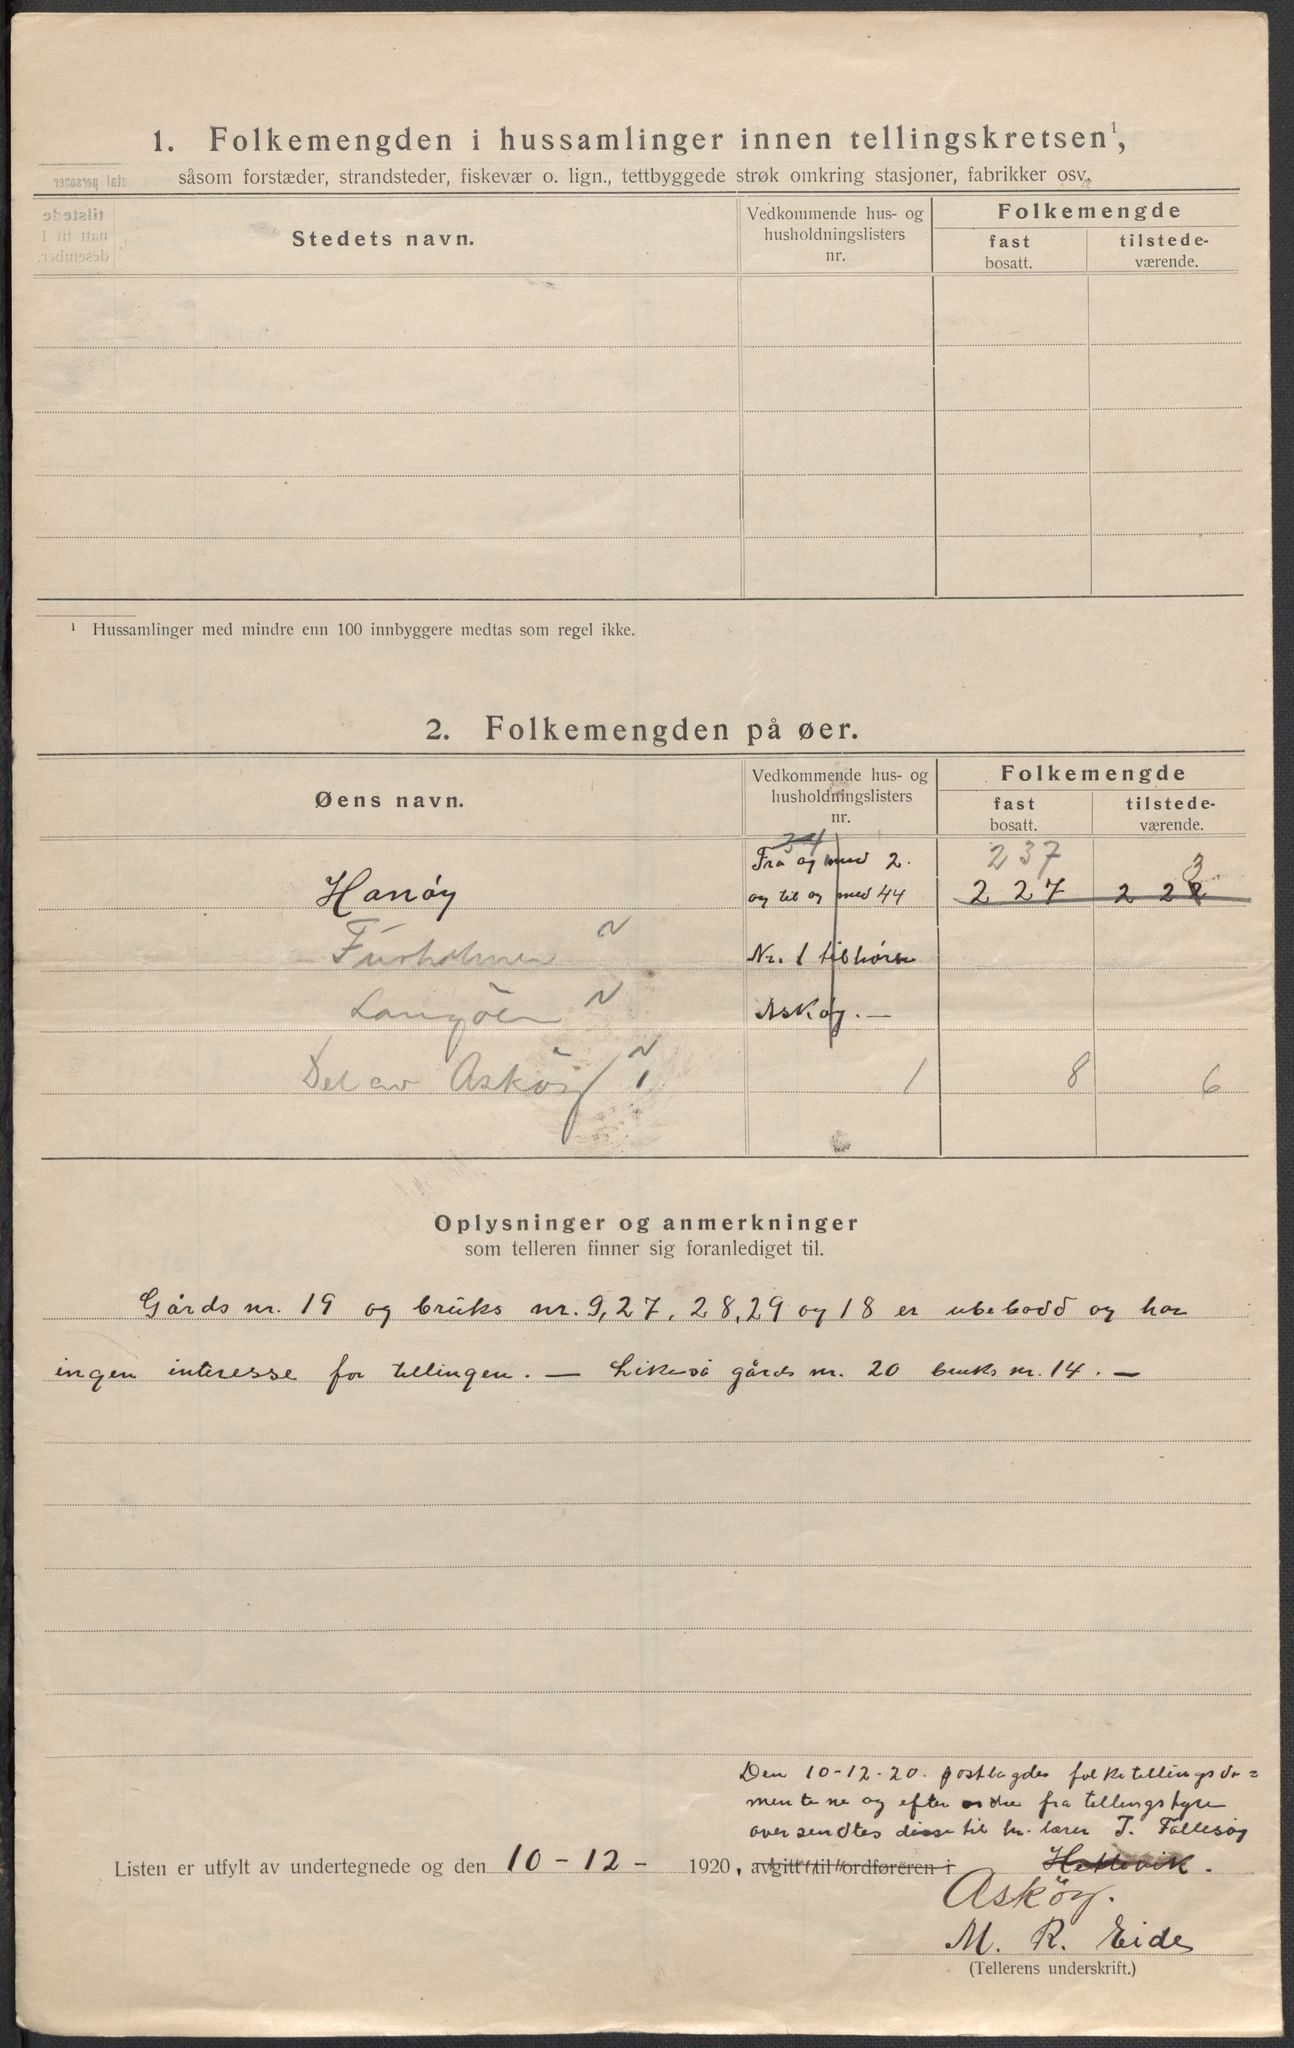 1. Folkemengden i hussamlinger innen tellingskretsen¹,
såsom forstæder, strandsteder, fiskevær o. lign., tettbyggede strøk omkring stasjoner, fabrikker osv.
Stedets navn.
Vedkommende hus- og
husholdningslisters
nr.
Folkemengde
fast
bosatt.
tilstede-
værende.
¹ Hussamlinger med mindre enn 100 innbyggere medtas som regel ikke.
2. Folkemengden på øer.
Øens navn.
Vedkommende hus- og
husholdningslisters
nr.
Folkemengde
fast
bosatt.
tilstede-
værende.
34
Fra og med 2. 237 3
Hanøy og til og med 44 227 222
Furholmen Nr. 1 tilhører
Langöen Askøy. —
Del av Asköy 1 8 6
Oplysninger og anmerkninger
som telleren finner sig foranlediget til.
Gårds nr. 19 og bruks nr. 9, 27, 28, 29 og 18 er ubebodd og har
ingen interesse for tellingen. — Likeså gårds nr. 20 bruks nr. 14. —
Den 10-12-20. postlagdes folketellingsdo=
mentene og efter ordre fra tellingstyre
oversendtes disse til hr. lærer T. Follesøy
Listen er utfylt av undertegnede og den 10-12- 1920, avgitt til ordføreren i Hettevik.
Asköy.
M. R. Eide
(Tellerens underskrift.)